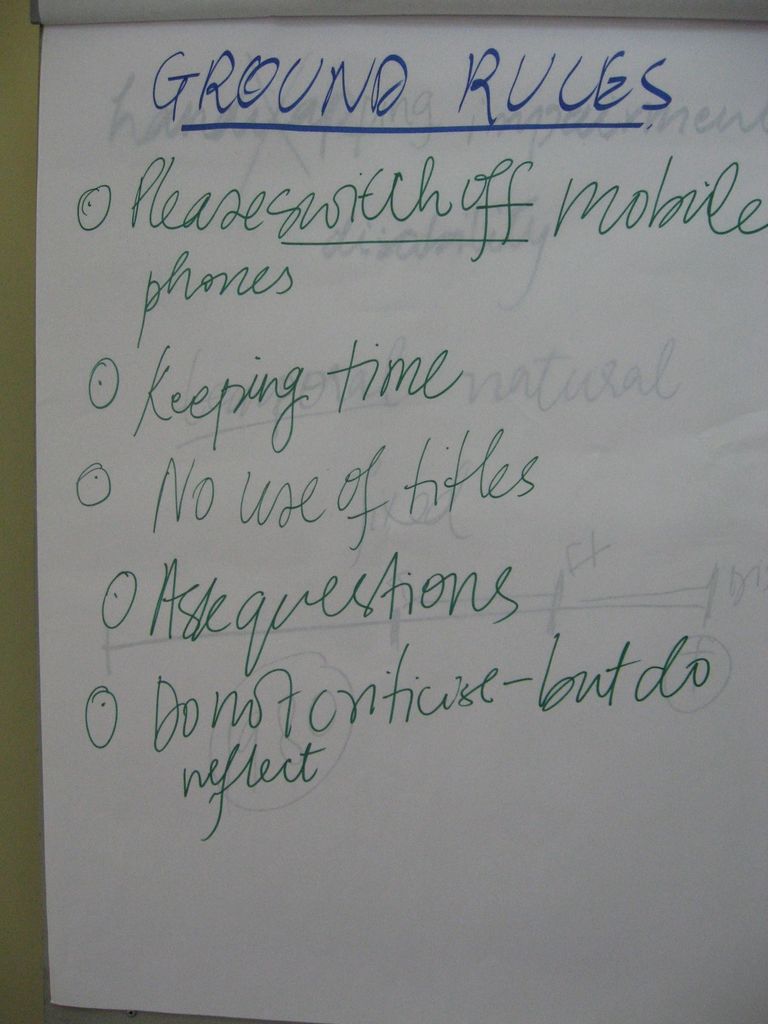 GROUND RULES
Please switch off mobile
phones
Keeping time
No use of titles
Ask questions
Do not criticise - but do
reflect